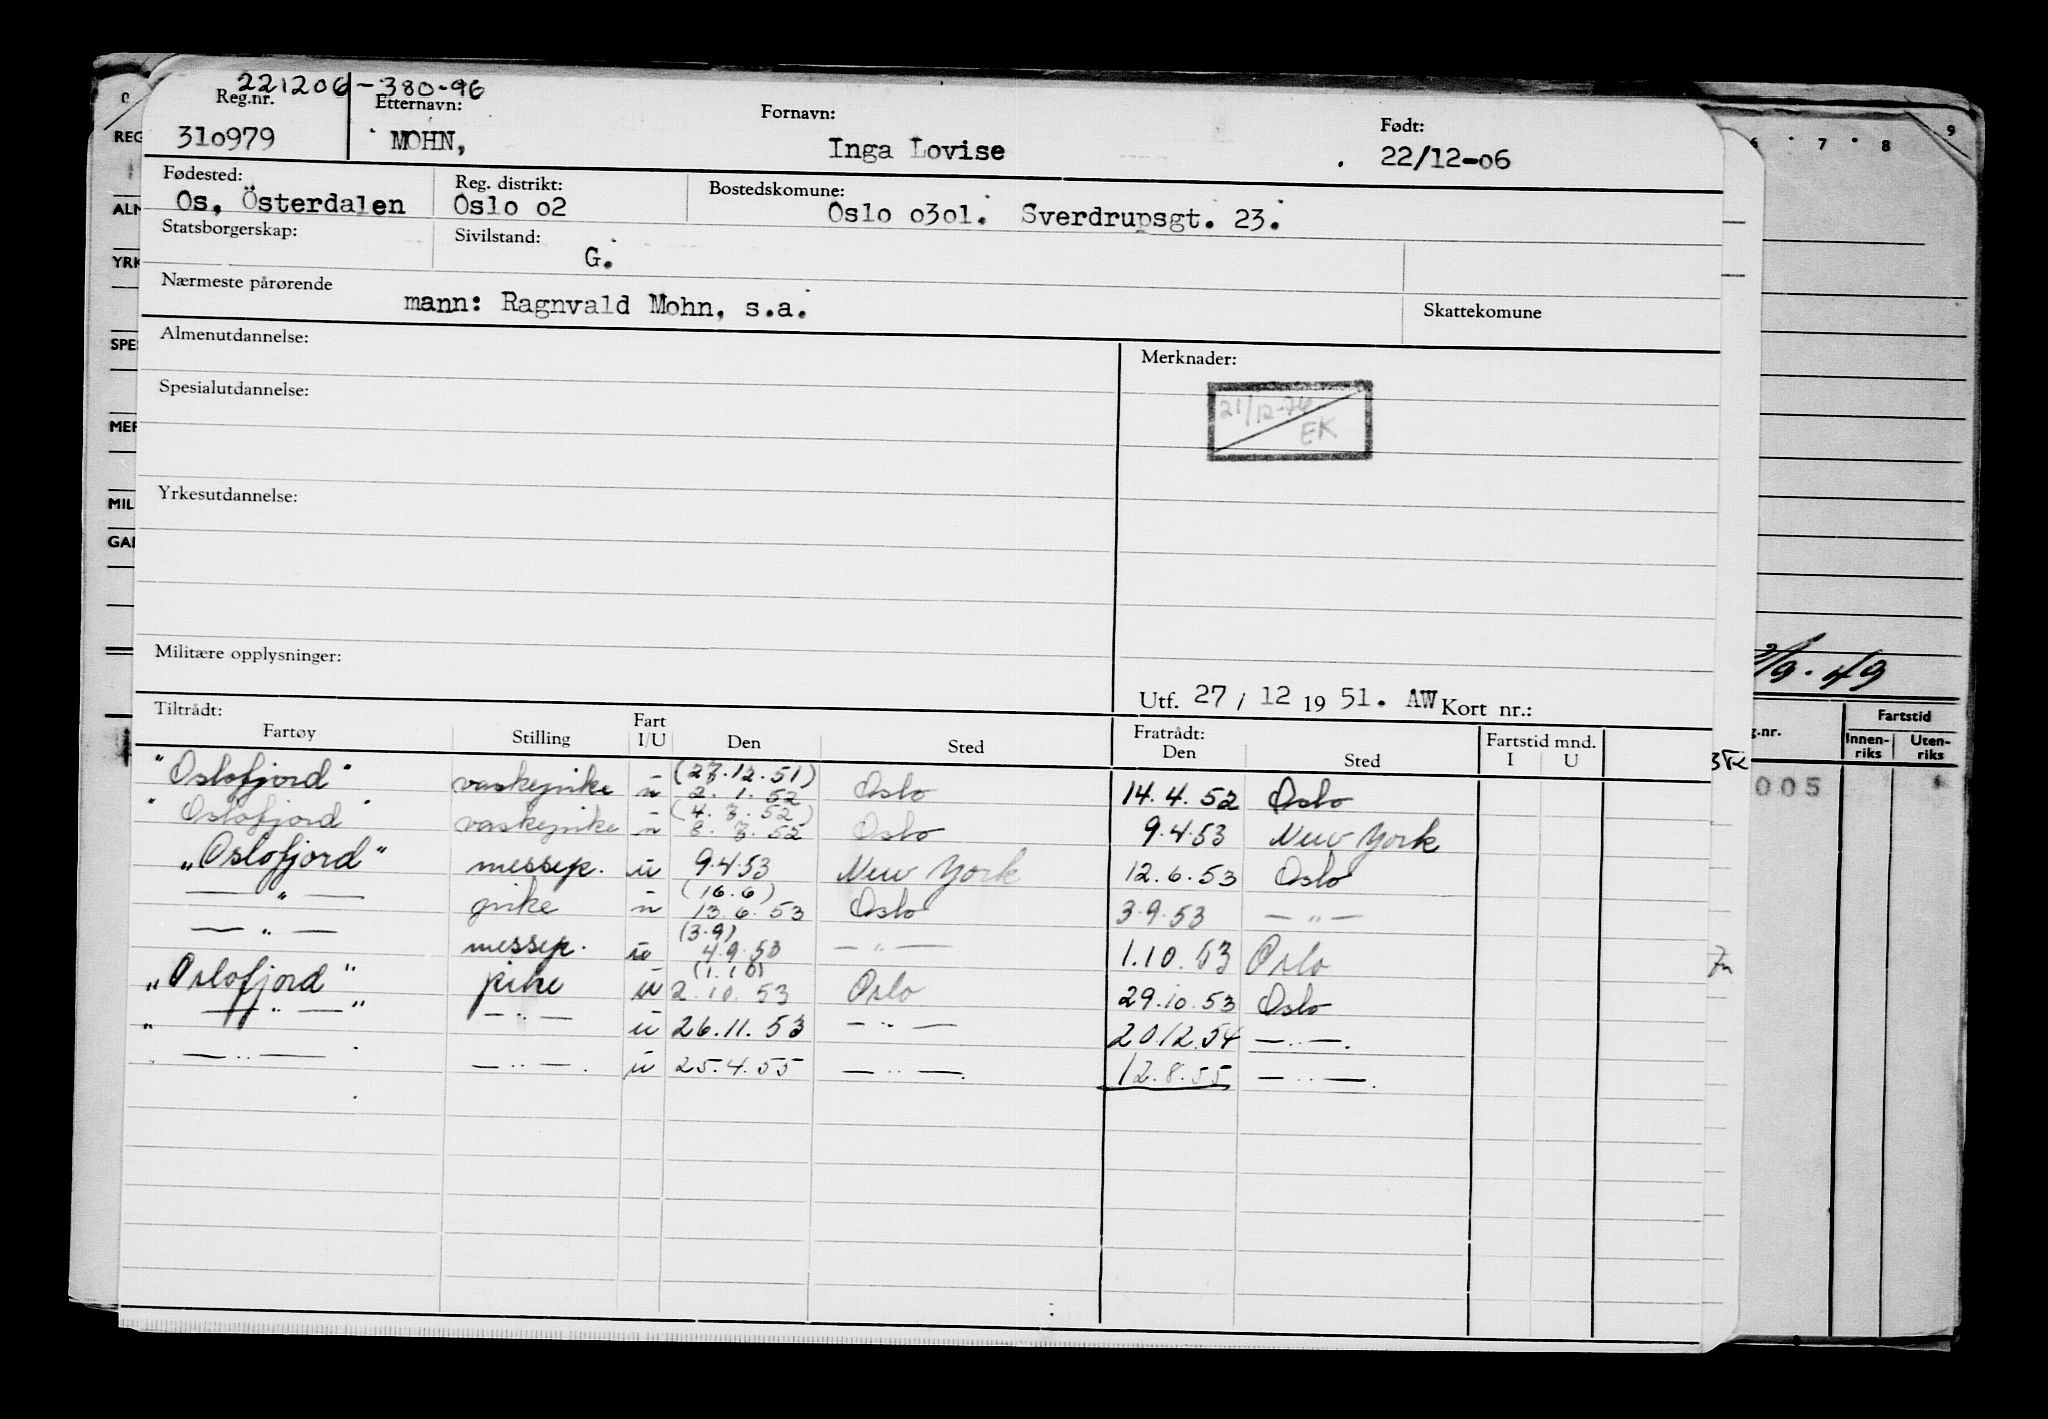 221206-380-96
Reg.nr. Etternavn: Fornavn: Født:
310979 MOHN, Inga Lovise 22/12-06
Fødested: Reg. distrikt: Bostedskomune:
Os, Österdalen Oslo o2 Oslo o3o1. Sverdrupsgt. 23.
Statsborgerskap: Sivilstand: G.
Nærmeste pårørende mann: Ragnvald Mohn, s.a. Skattekomune
Almenutdannelse: Merknader:
21/12-76 EK
Spesialutdannelse:
Yrkesutdannelse:
Militære opplysninger:
Utf. 27 / 12 19 51. AW Kort nr.:
Tiltrådt: Fratrådt:
Fartøy Stilling Fart I/U Den Sted Den Sted Fartstid mnd. I U
"Oslofjord" vaskepike u (27.12.51) 2.1.52 Oslo 14.4.52 Oslo
"Oslofjord" vaskepike u Oslo 9.4.53 New York
"Oslofjord" messep. u 9.4.53 New York 12.6.53 Oslo
— " — pike u (16.6) 13.6.53 Oslo 3.9.53 — " —
— " — messep. u (3.9) 4.9.53 — " — 1.10.53 Oslo
"Oslofjord" pike u (1.10) 2.10.53 Oslo 29.10.53 Oslo
" — " — " — " — u 26.11.53 — " — 20.12.54 — " —.
" — " — — " —. u 25.4.55 — " —. 12.8.55 — " —.
REG
ALM
YRK
SPE
MER
MIL
GAR
7 8 9
/9-49
g.nr. Fartstid
Innenriks Utenriks
005